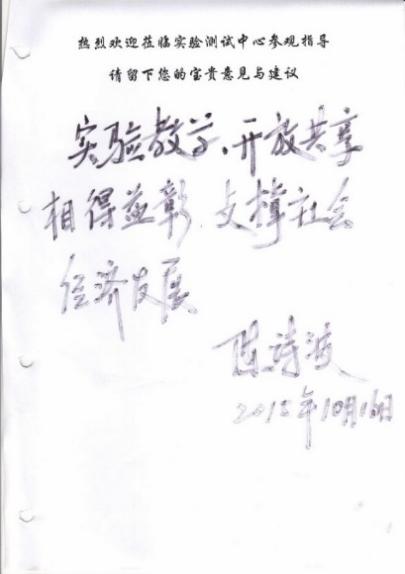 热烈欢迎莅临实验测试中心参观指导
请留下您的宝贵意见与建议
实验教学、开放共享
相得益彰 支撑社会
经济发展
陈诗波
2015年10月16日